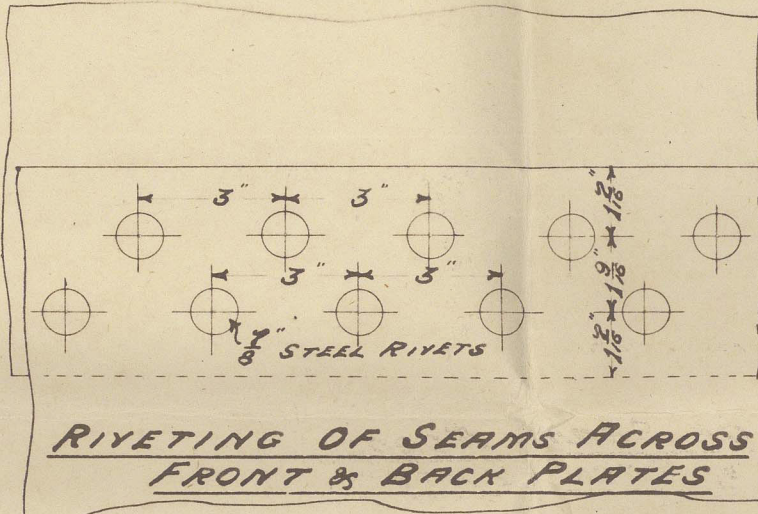 3" 3"
1 7/16"
3" 3"
1 9/16"
7/8" STEEL RIVETS
1 7/16"
RIVETING OF SEAMS ACROSS
FRONT & BACK PLATES